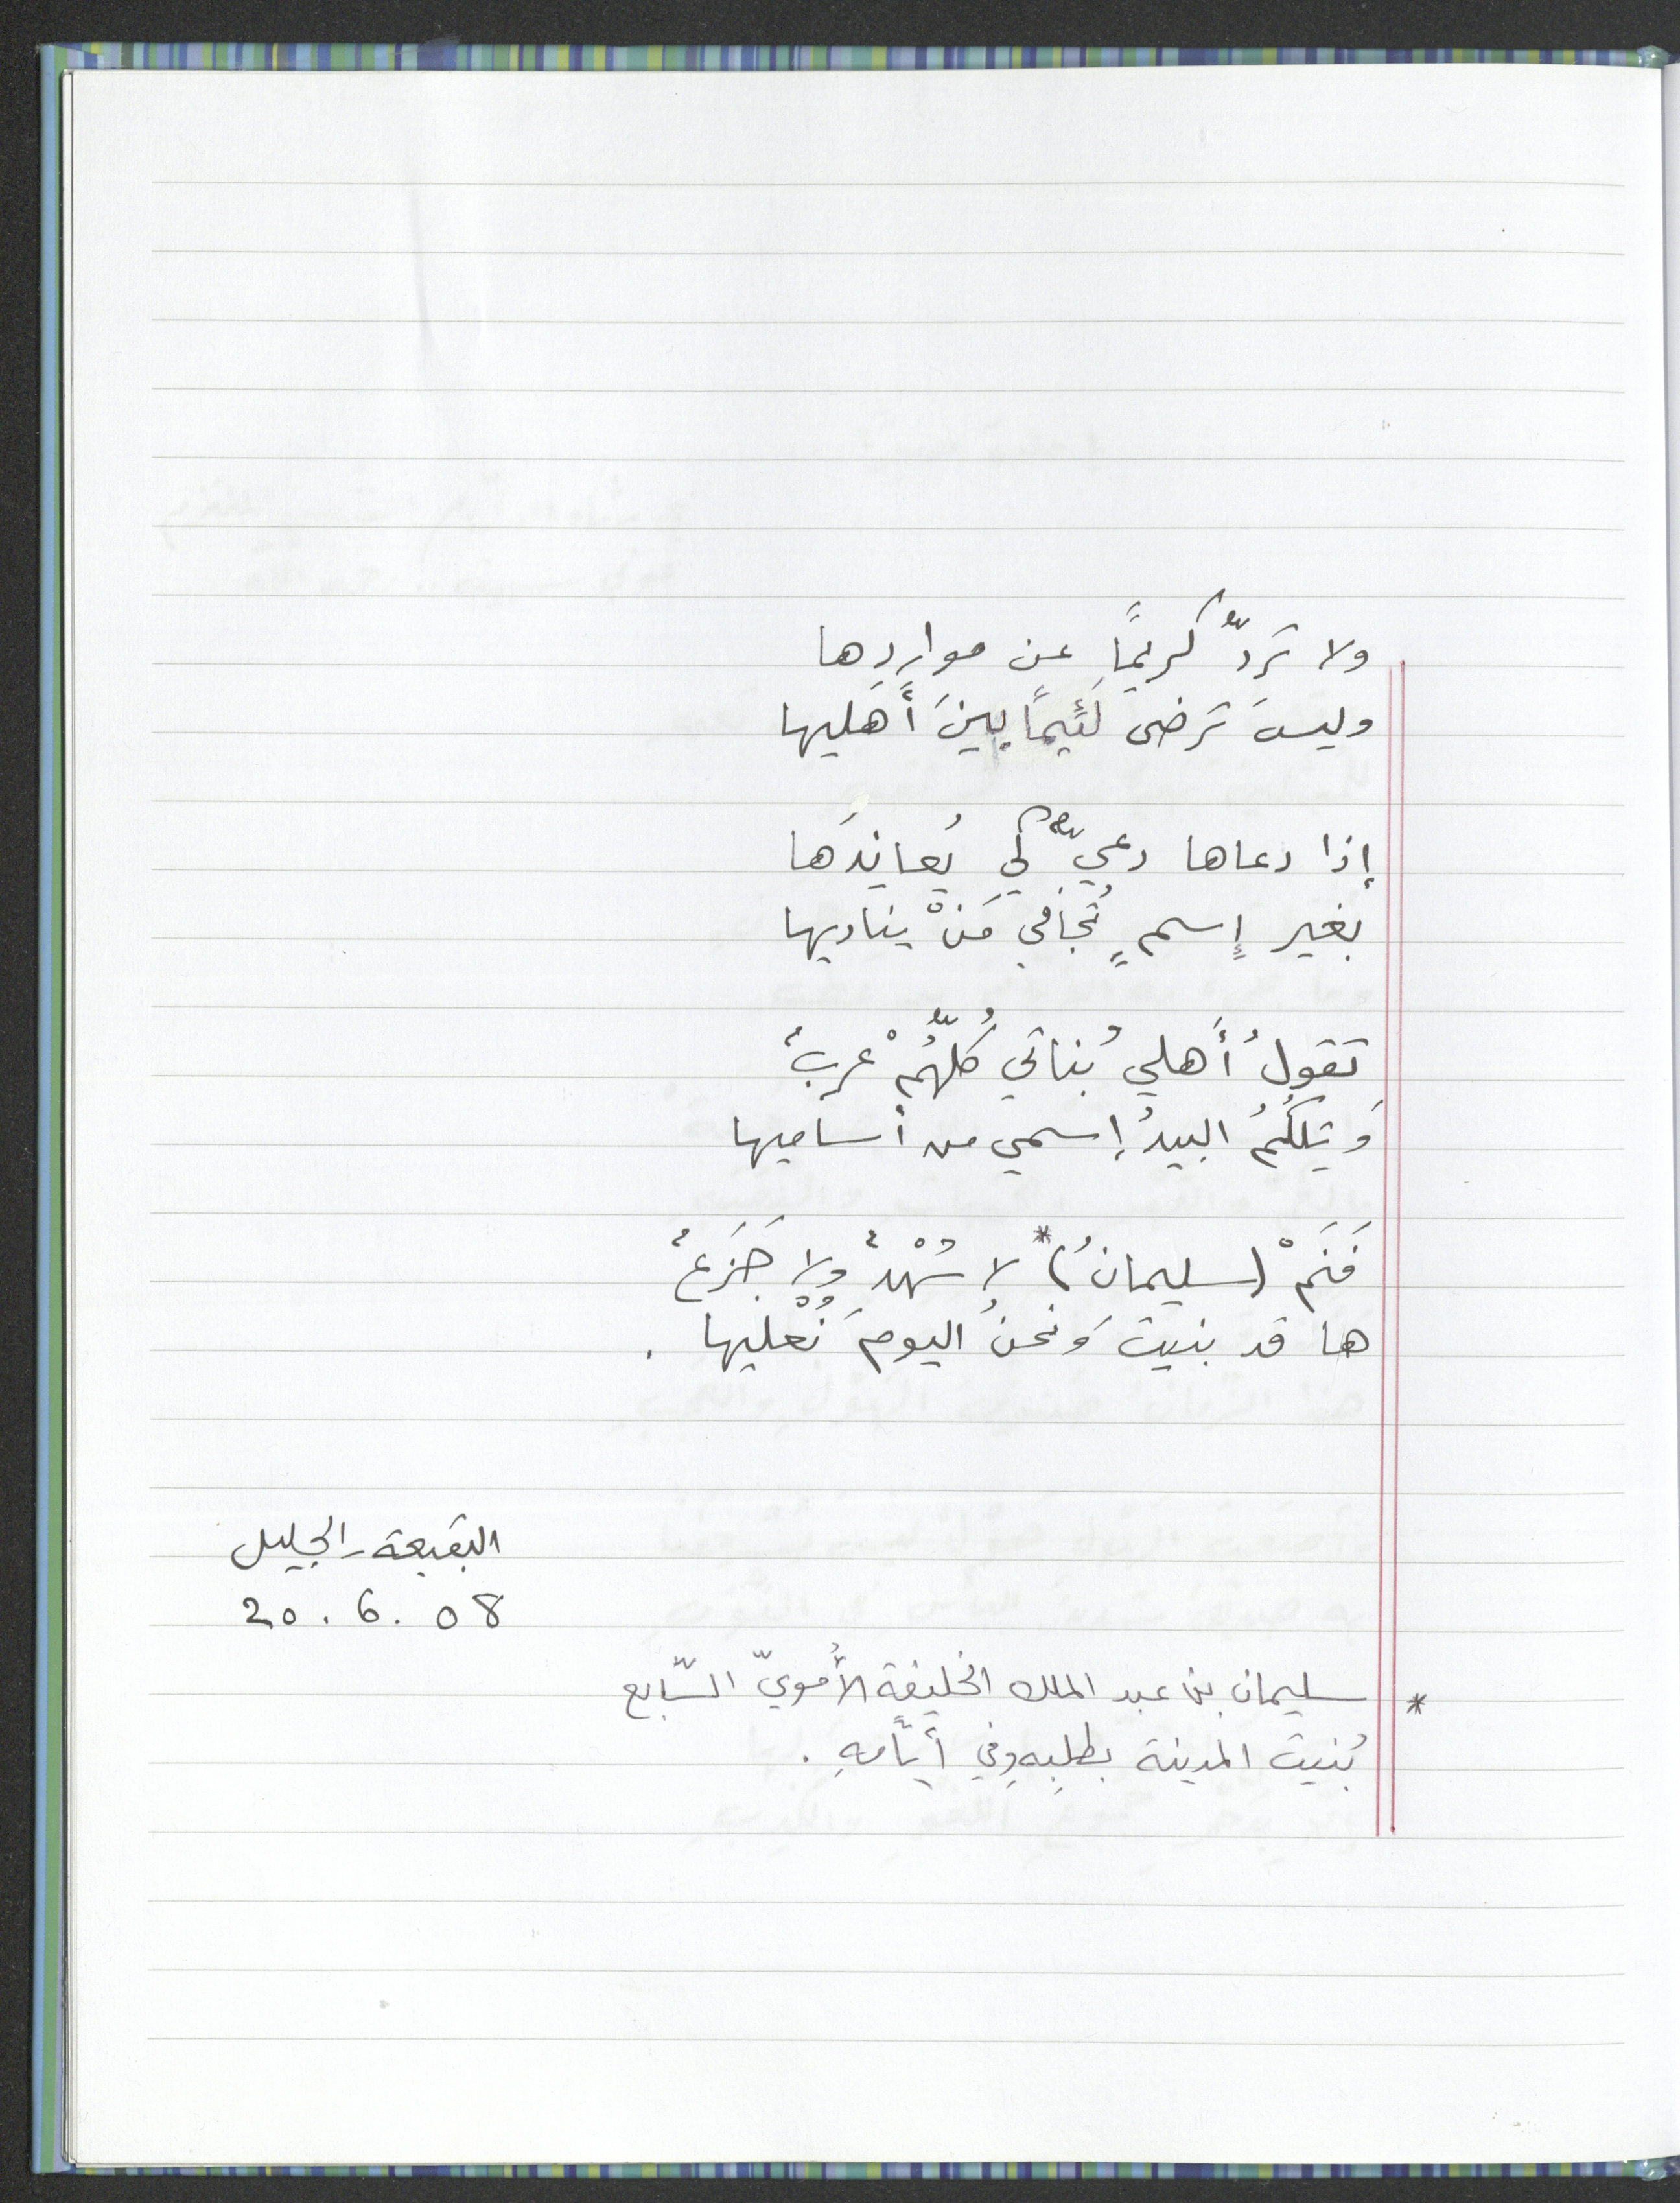 ولا تَردّ كريمًا عن موارِدِها
وليسَ تَرضى لَئيمًا بينَ أَهليها
إذا دعاها دعيّ لِي يُعانِدَها
بغير إِسمٍ تُجافي مَنْ يناديها
تقولُ أَهلي بُناتي كُلّهُمْ عربٌ
وَتِلكُمُ البيدُ إسمي من أساميها
فَنَمْ (سليمانُ)* لا سُهْدٌ ولا جَزَعٌ
ها قد بنيتَ وَنحنُ اليومَ نُعْليها .
البقيعة - الجليل
20 . 6 . 08
* سليمان بن عبد الملك الخليفة الأُمويّ السّابع
بُنيت المدينة بطلِبِهِ وفي أيّامهِ .